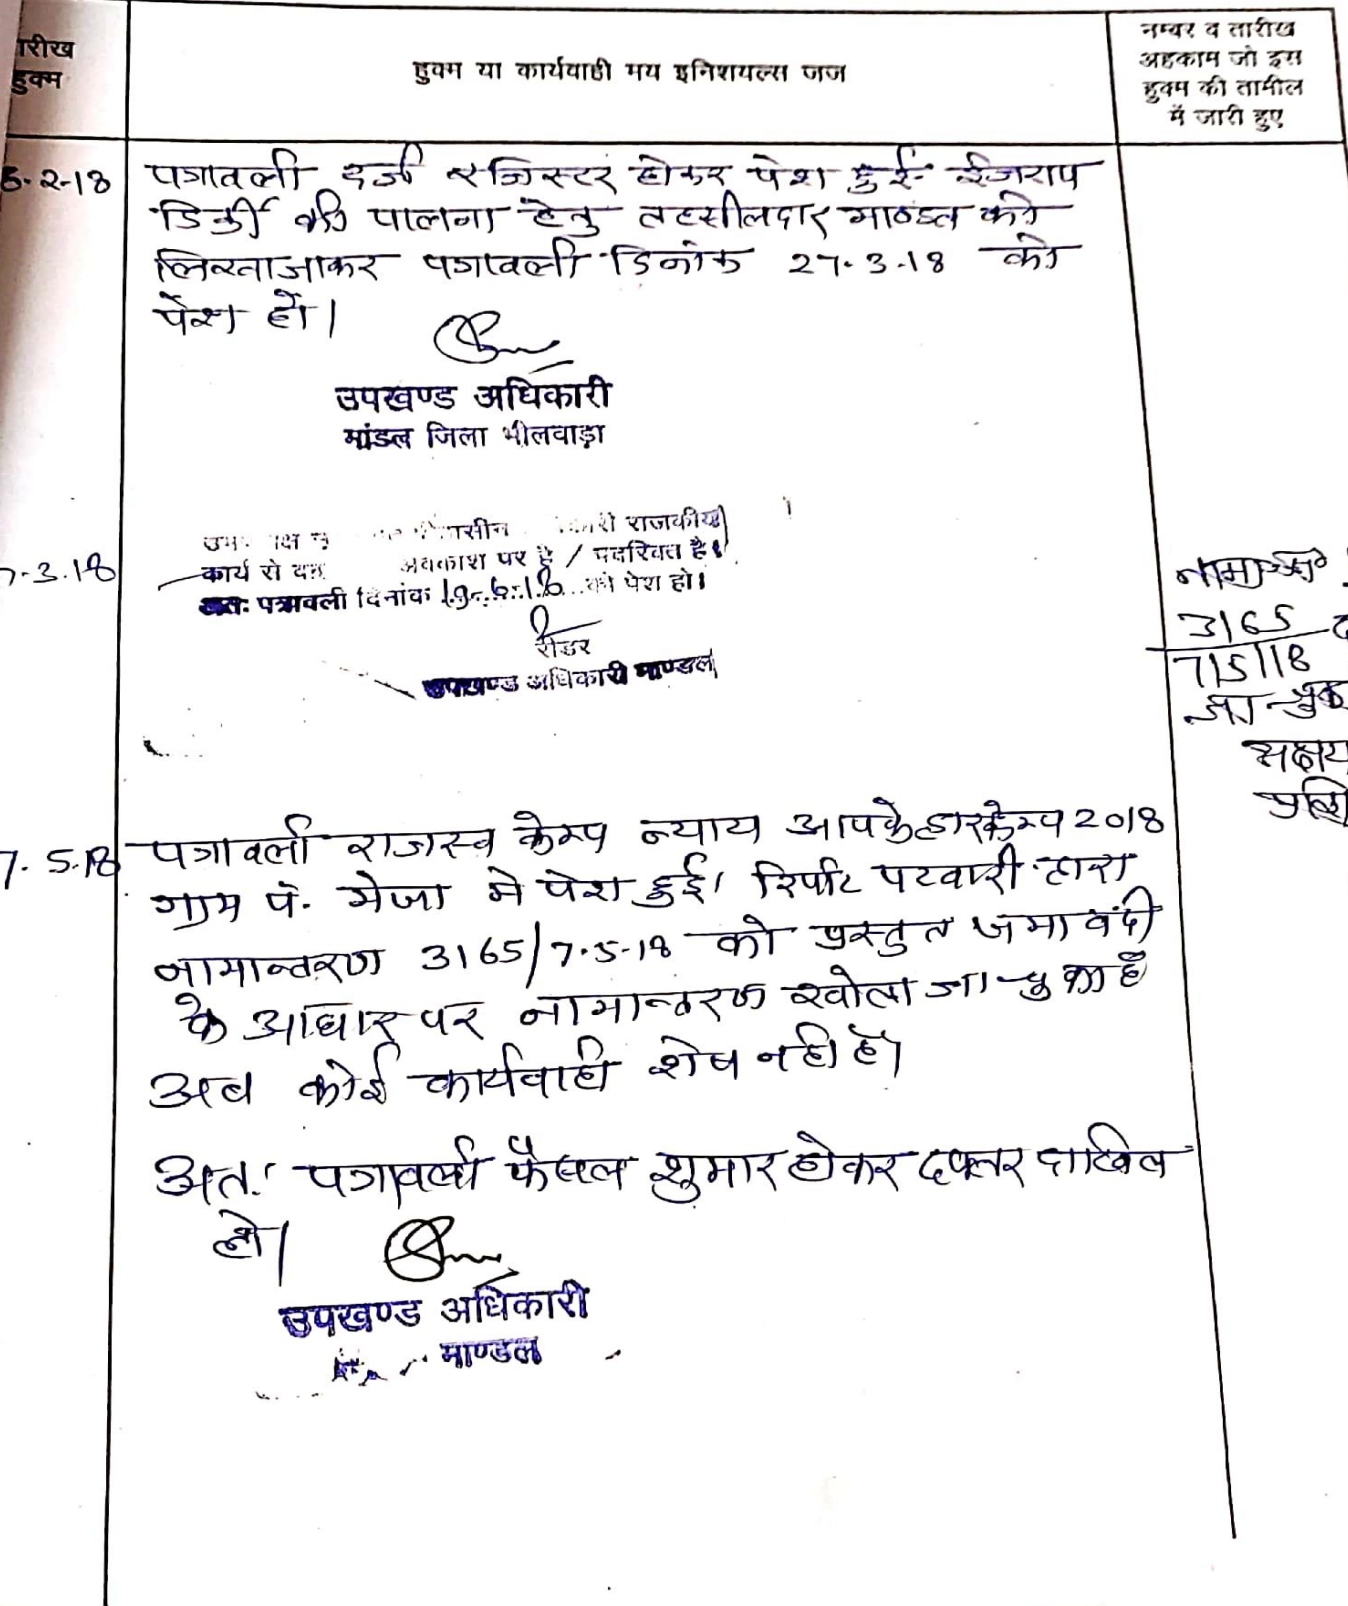 तारीख
हुक्म
हुक्म या कार्यवाही मय इनिशयल्स जज
नम्बर व तारीख
अहकाम जो इस
हुक्म की तामील
में जारी हुए
5-2-18
पत्रावली दर्ज रजिस्टर होकर पेश हुई ईजराय
डिर्की की पालना हेतु तहसीलदार माण्डल को
लिखा जाकर पत्रावली दिनांक 27.3.18 को
पेश हों।
उपखण्ड अधिकारी
मांडल जिला भीलवाड़ा
7-3.18
राजकीय
कार्य से अवकाश पर है / पदरिक्त है।
अतः पत्रावली दिनांक 19-6-18 को पेश हो।
रीडर
उपखण्ड अधिकारी माण्डल
3165
7/5/18
जा चुका
7.5.18
पत्रावली राजस्व केम्प न्याय आपके द्वार केम्प 2018
ग्राम पं. मेजा मे पेश हुई। रिर्पोट पटवारी द्वारा
नामान्तरण 3165/7.5-18 को प्रस्तुत जमाबंदी
के आधार पर नामान्तरण खोला जा चुका है
अब कोई कार्यवाही शेष नही है।
अतः पत्रावली फैसल शुमार होकर दफ्तर दाखिल
हो।
उपखण्ड अधिकारी
माण्डल